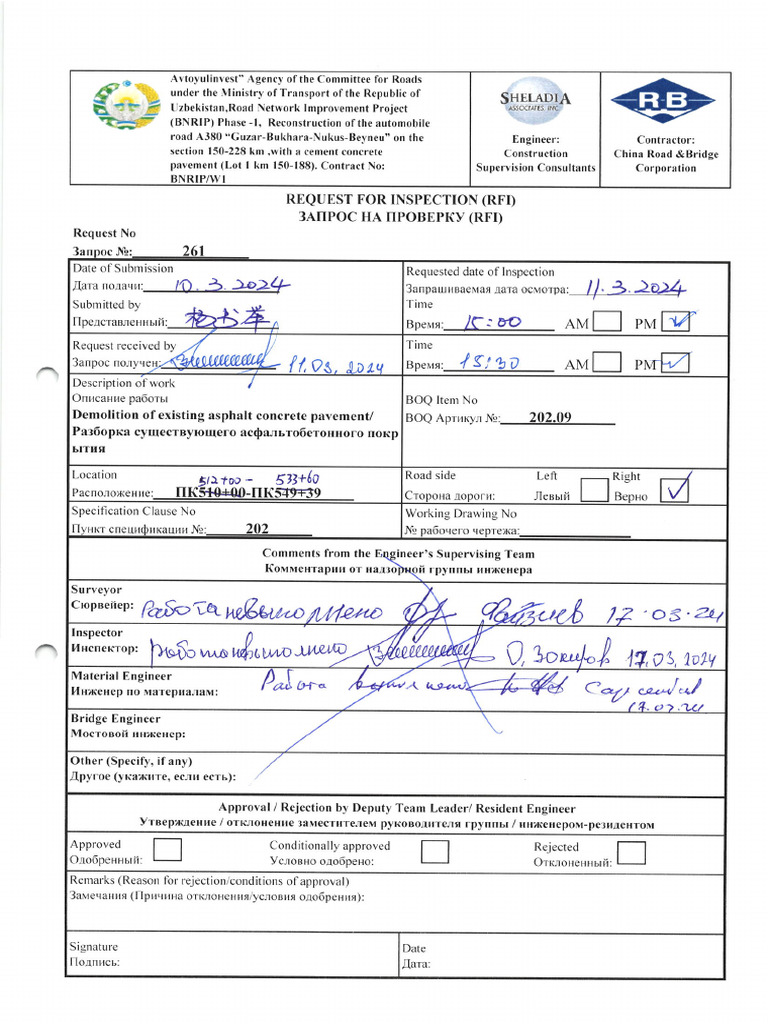 Avtoyulinvest” Agency of the Committee for Roads
under the Ministry of Transport of the Republic of
Uzbekistan,Road Network Improvement Project
(BNRIP) Phase -1, Reconstruction of the automobile
road A380 “Guzar-Bukhara-Nukus-Beyneu” on the
section 150-228 km ,with a cement concrete
pavement (Lot 1 km 150-188). Contract No:
BNRIP/W1
SHELADIA
ASSOCIATES, INC.
Engineer:
Construction
Supervision Consultants
RB
Contractor:
China Road &Bridge
Corporation
REQUEST FOR INSPECTION (RFI)
ЗАПРОС НА ПРОВЕРКУ (RFI)
Request No
Запрос №: 261
Date of Submission
Дата подачи: 10.3.2024
Requested date of Inspection
Запрашиваемая дата осмотра: 11.3.2024
Submitted by
Представленный:
Time
Время: 15:00 AM PM
Request received by
Запрос получен: 11.03.2024
Time
Время: 15:30 AM PM
Description of work
Описание работы
Demolition of existing asphalt concrete pavement/
Разборка существующего асфальтобетонного покр
ытия
BOQ Item No
BOQ Артикул №: 202.09
Location
512+00 - 533+60
Расположение: ПК510+00-ПК549+39
Road side Left Right
Сторона дороги: Левый Верно
Specification Clause No
Пункт спецификации №: 202
Working Drawing No
№ рабочего чертежа:
Comments from the Engineer’s Supervising Team
Комментарии от надзорной группы инженера
Surveyor
Сюрвейер: Работа невыполнено Файзиев 17.03.24
Inspector
Инспектор: работа невыполнено О, Зокиров 17.03.2024
Material Engineer
Инженер по материалам: Работа
Bridge Engineer
Мостовой инженер:
Other (Specify, if any)
Другое (укажите, если есть):
Approval / Rejection by Deputy Team Leader/ Resident Engineer
Утверждение / отклонение заместителем руководителя группы / инженером-резидентом
Approved
Одобренный:
Conditionally approved
Условно одобрено:
Rejected
Отклоненный:
Remarks (Reason for rejection/conditions of approval)
Замечания (Причина отклонения/условия одобрения):
Signature
Подпись:
Date
Дата: